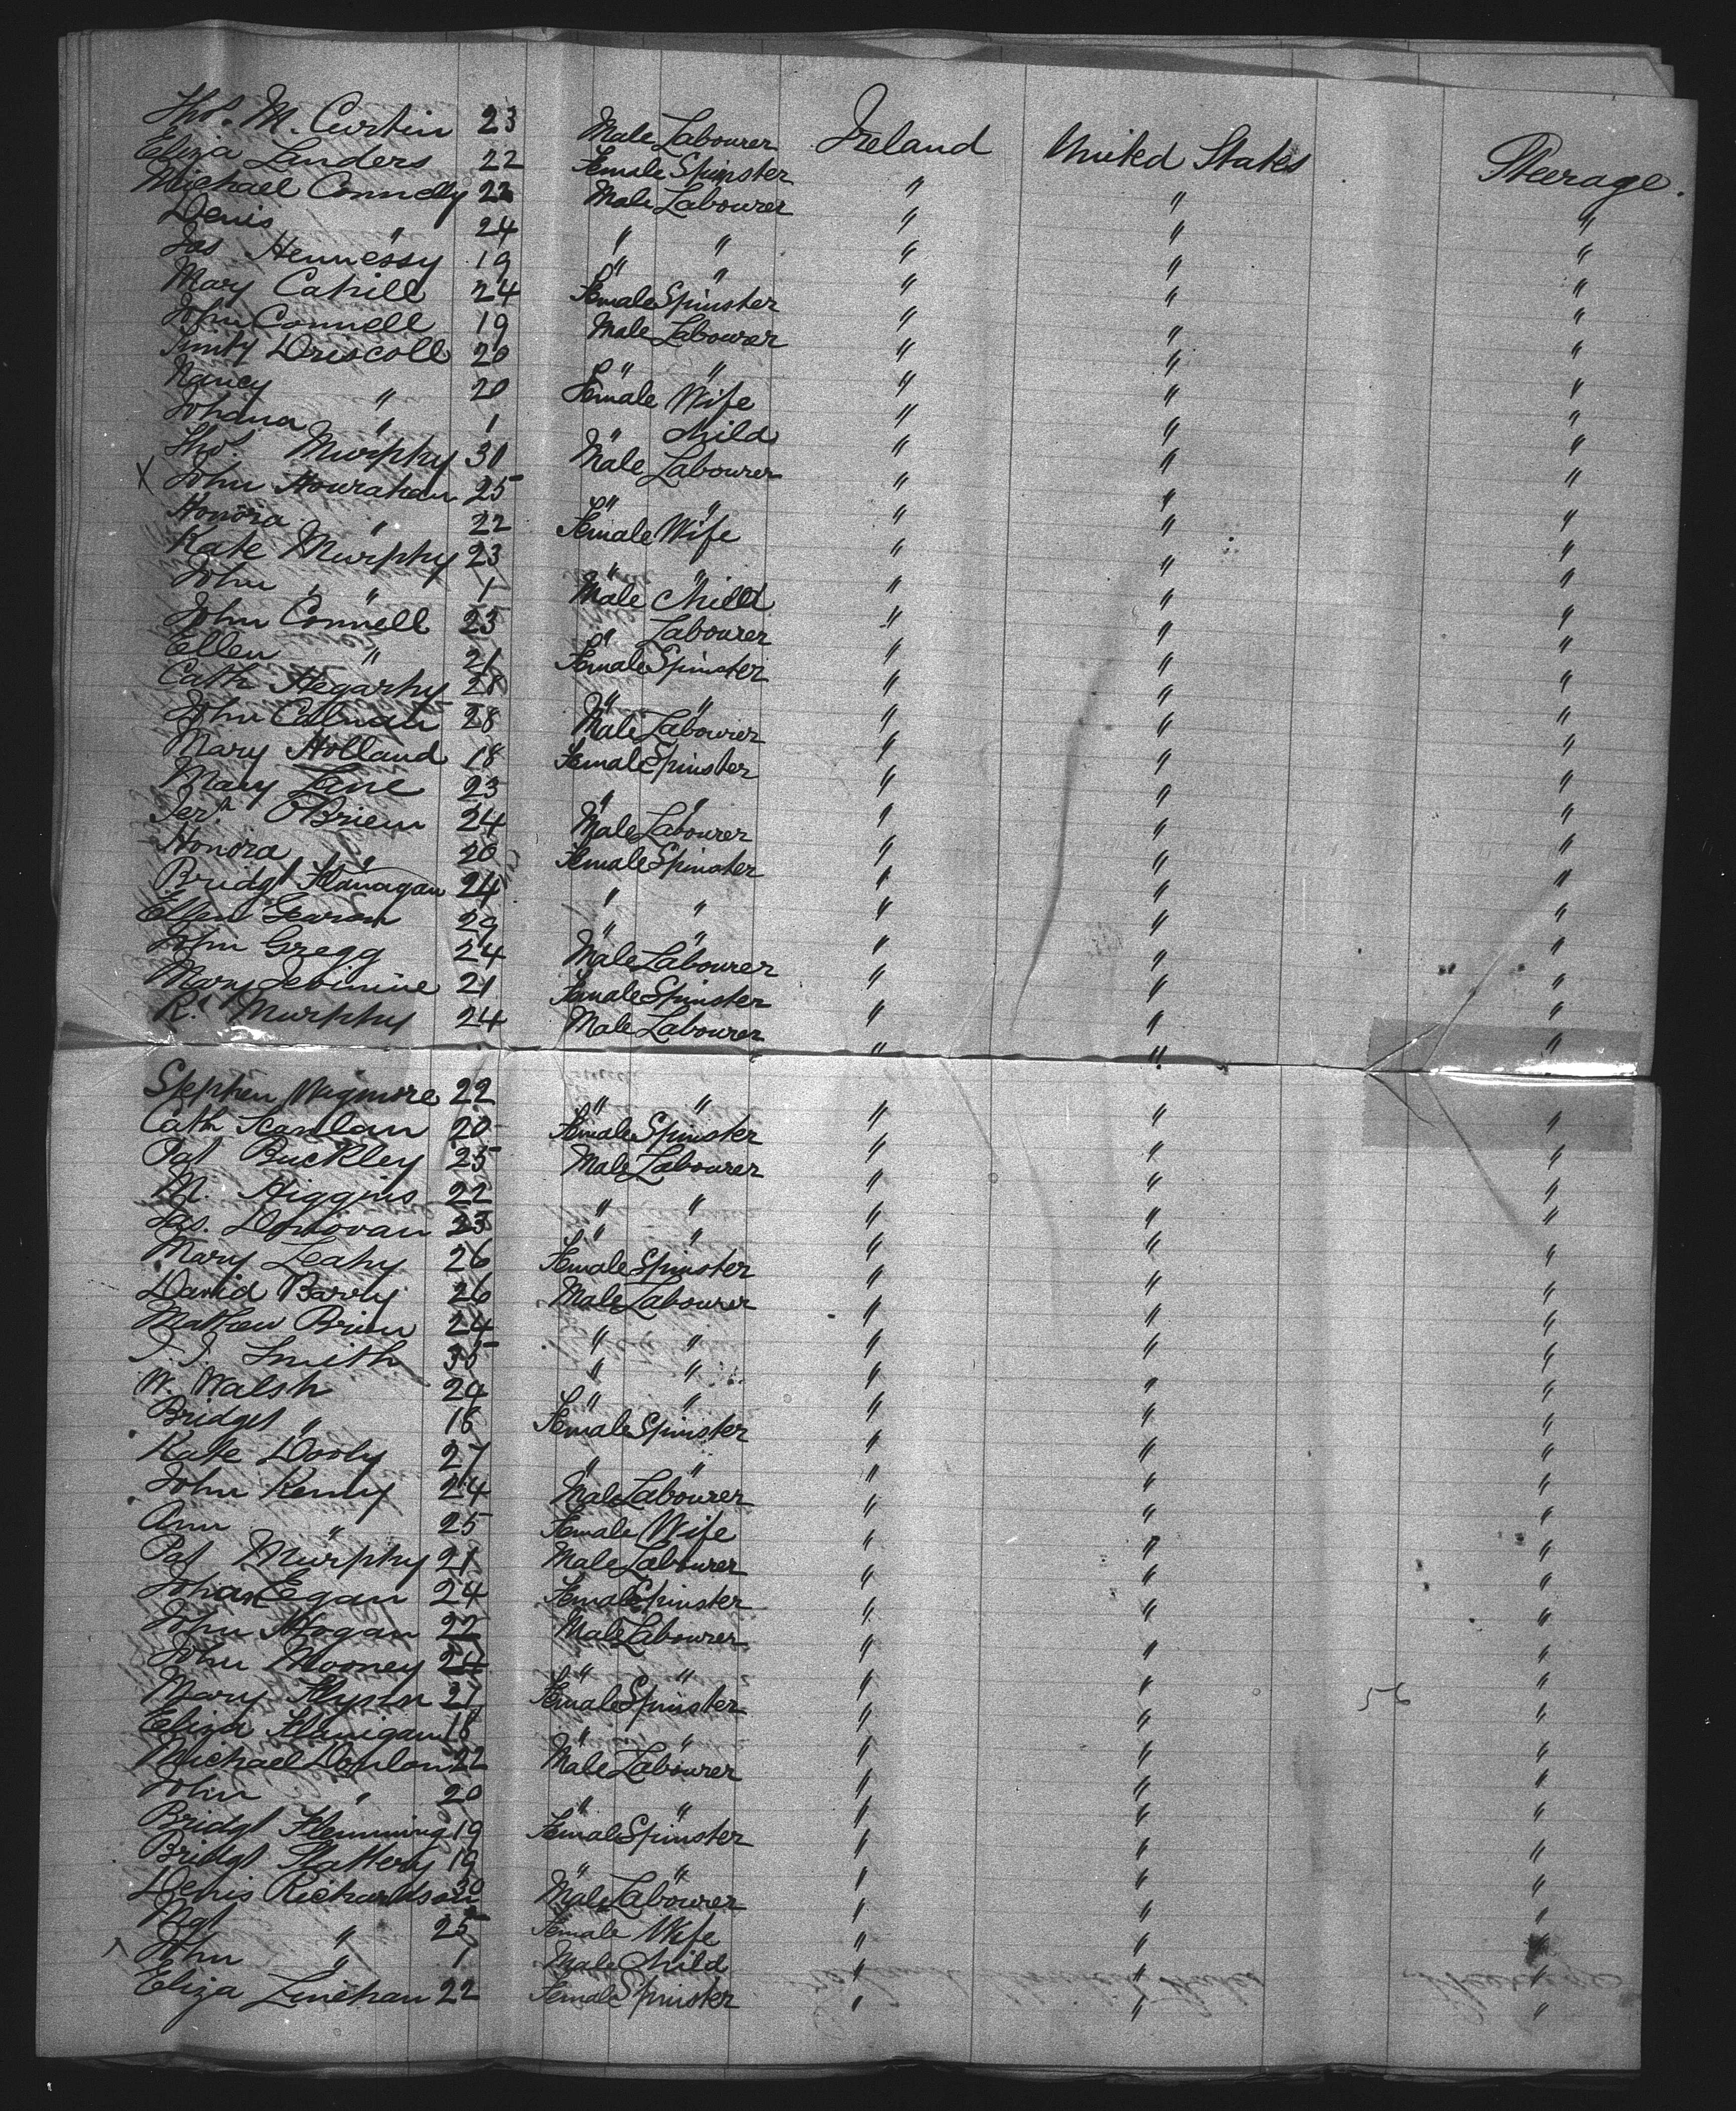 Thos. M. Curtin 23 Male Labourer Ireland United States Steerage.
Eliza Landers 22 Female Spinster " " "
Michael Connolly 22 Male Labourer " " "
Denis " 24 " " " " "
Jas Hennessy 19 " " " " "
Mary Cahill 24 Female Spinster " " "
John Connell 19 Male Labourer " " "
Timty Driscoll 20 " " " " "
Nancy " 20 Female Wife " " "
Johana " 1 " Child " " "
Thos. Murphy 30 Male Labourer " " "
X John Hourahan 25 " " " " "
Honora " 22 Female Wife " " "
Kate Murphy 23 " " " " "
John " 1 Male Child " " "
John Connell 23 " Labourer " " "
Ellen " 21 Female Spinster " " "
Cath Hegarty 21 " " " " "
John Calnan 28 Male Labourer " " "
Mary Holland 18 Female Spinster " " "
Mary Lane 23 " " " " "
Jerh. OBrien 24 Male Labourer " " "
Honora " 20 Female Spinster " " "
Bridgt Flanagan 24 " " " " "
Ellen Gearon 29 " " " " "
John Gregg 24 Male Labourer " " "
Mary 21 Female Spinster " " "
Rd. Murphy 24 Male Labourer " " "
Stephen Wagmore 22 " " " " "
Cath Scanlan 20 Female Spinster " " "
Pat Buckley 25 Male Labourer " " "
M. Higgins 22 " " " " "
Jas. Donovan 23 " " " " "
Mary Leahy 26 Female Spinster " " "
David Barry 26 Male Labourer " " "
Mathew Brien 24 " " " " "
Smith 35 " " " " "
W. Walsh 24 " " " " "
Bridget " 18 Female Spinster " " "
Kate Dooly 27 " " " " "
John Kenny 24 Male Labourer " " "
Ann " 25 Female Wife " " "
Pat Murphy 21 Male Labourer " " "
Johan Egan 24 Female Spinster " " "
John Hogan 22 Male Labourer " " "
John Mooney 24 " " " " "
Mary Flynn 21 Female Spinster " " 56 "
Eliza Flanigan 18 " " " " "
Michael Donlon 22 Male Labourer " " "
John " 20 " " " " "
Bridgt Flemming 19 Female Spinster " " "
Bridgt Slattery 19 " " " " "
Denis Richardson 30 Male Labourer " " "
Mgt " 25 Female Wife " " "
John " 1 Male Child " " "
Eliza Linehan 22 Female Spinster " " "